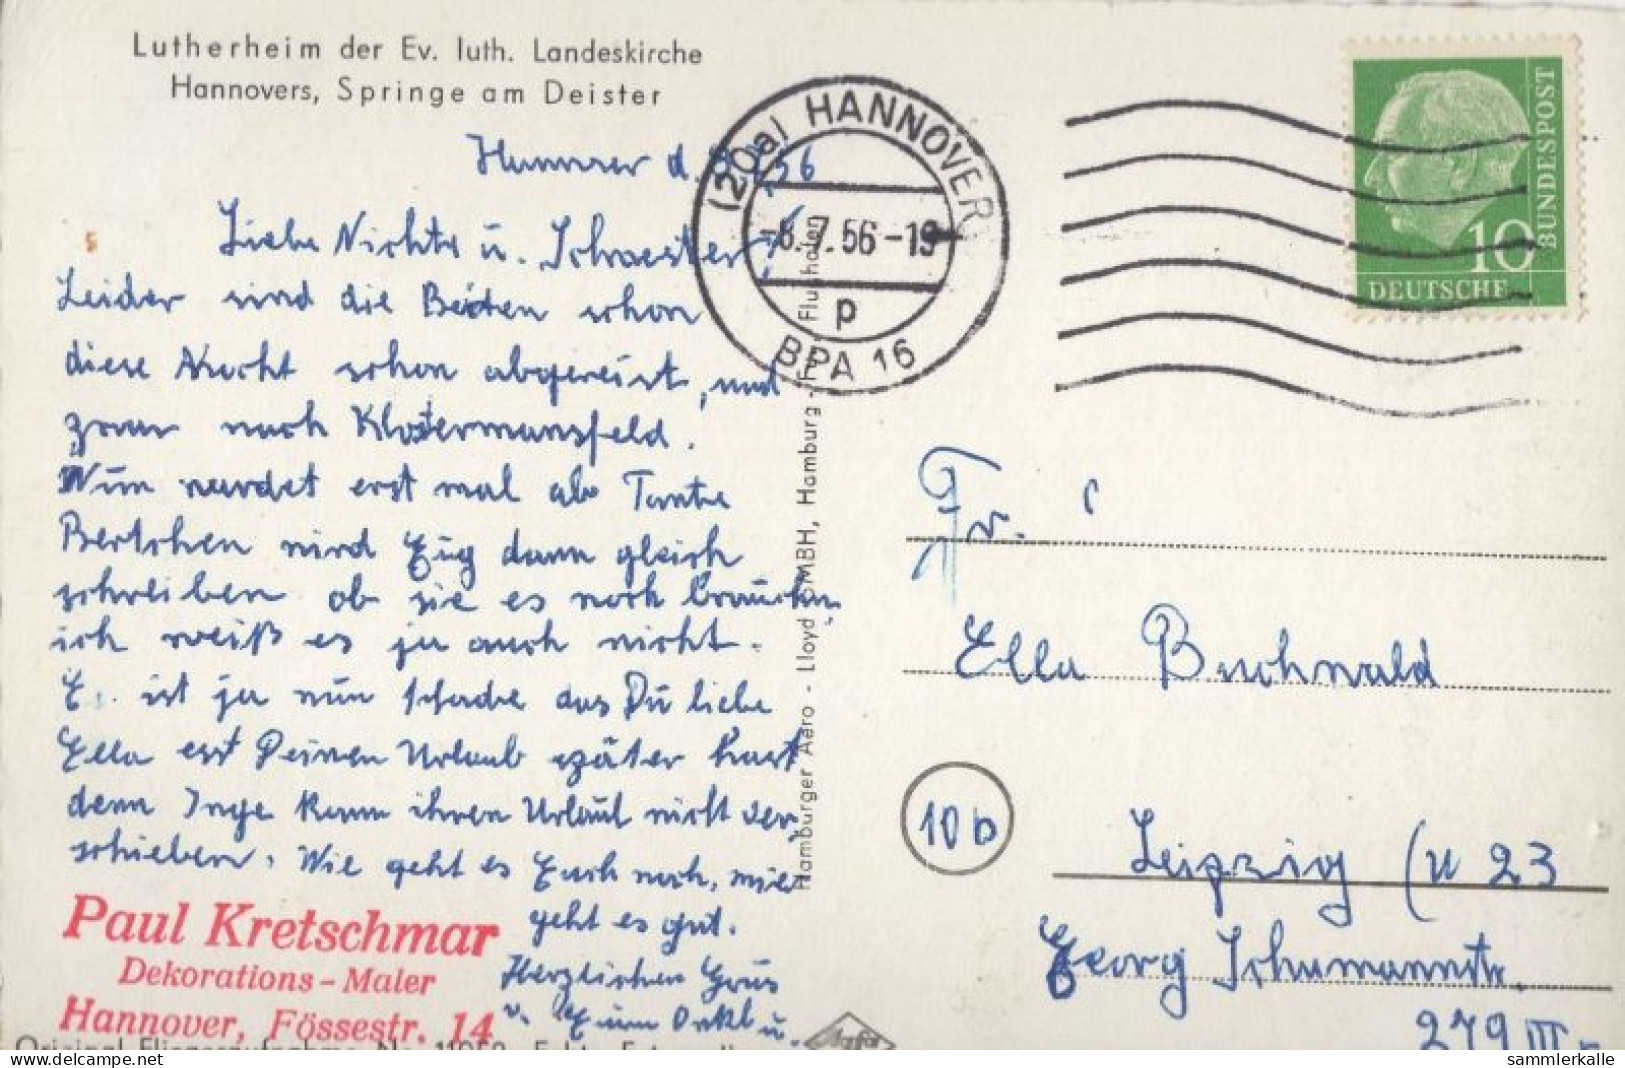 Lutherheim der Ev. luth. Landeskirche
Hannovers, Springe am Deister
Hannover d. 56
Liebe Nichte u. Schwester!
Leider sind die Beiden schon
diese Nacht schon abgereist, und
zwar nach Klostermansfeld.
Nun wardet erst mal ab Tante
Bertchen wird Eug dann gleich
schreiben ob sie es noch brauchen,
ich weiß es ja auch nicht.
Es ist ja nun schade das Du liebe
Ella erst Deinen Urlaub später hast
denn Inge kann ihren Urlaub nicht ver,
schieben. Wie geht es Euch noch, mir
geht es gut.
Herzlichen Grus
v. Euren Onkel u.
Paul Kretschmar
Dekorations-Maler
Hannover, Fössestr. 14
Original Fliegeraufnahme No. 11052
Hamburger Aero - Lloyd GMBH, Hamburg - Flughafen
Agfa
(20a) HANNOVER
-6.7.56-19
p
BPA 16
10
BUNDESPOST
DEUTSCHE
Fr.
Ella Buchwald
10b
Leipzig (N 23
Georg Schumannstr.
279 III
sammlerkalle
https://www.delcampe.net